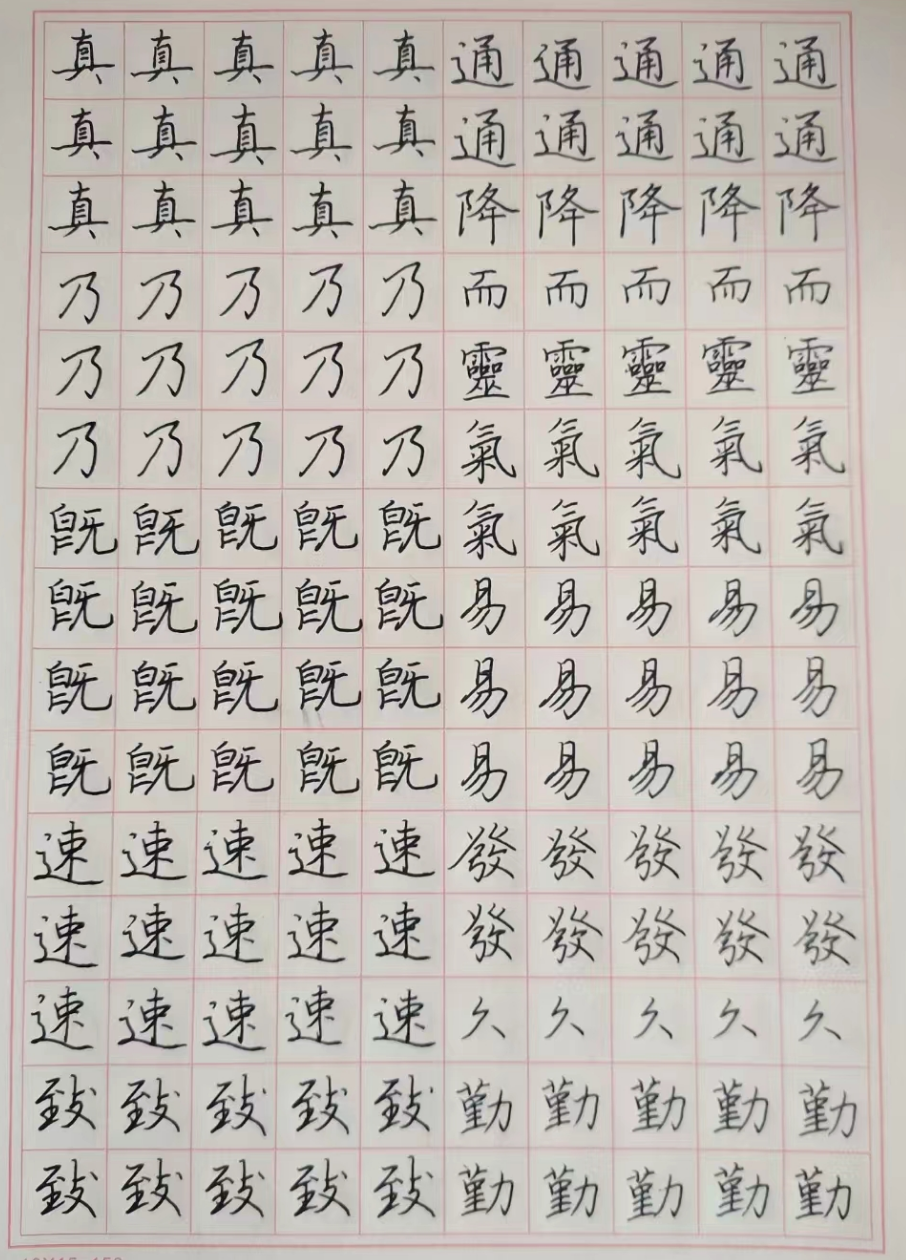 真真真真真通通通通通
真真真真真通通通通通
真真真真真降降降降降
乃乃乃乃乃而而而而而
乃乃乃乃乃靈靈靈靈靈
乃乃乃乃乃氣氣氣氣氣
既既既既既氣氣氣氣氣
既既既既既易易易易易
既既既既既易易易易易
既既既既既易易易易易
速速速速速發發發發發
速速速速速發發發發發
速速速速速久久久久久
致致致致致勤勤勤勤勤
致致致致致勤勤勤勤勤